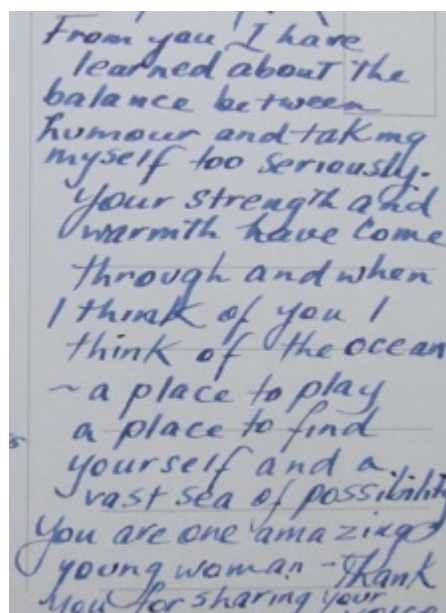 From you I have
learned about the
balance between
humour and taking
myself too seriously.
Your strength and
warmth have come
through and when
I think of you I
think of the ocean
~ a place to play
a place to find
yourself and a
vast sea of possibility
You are one amazing
young woman - Thank
you for sharing your